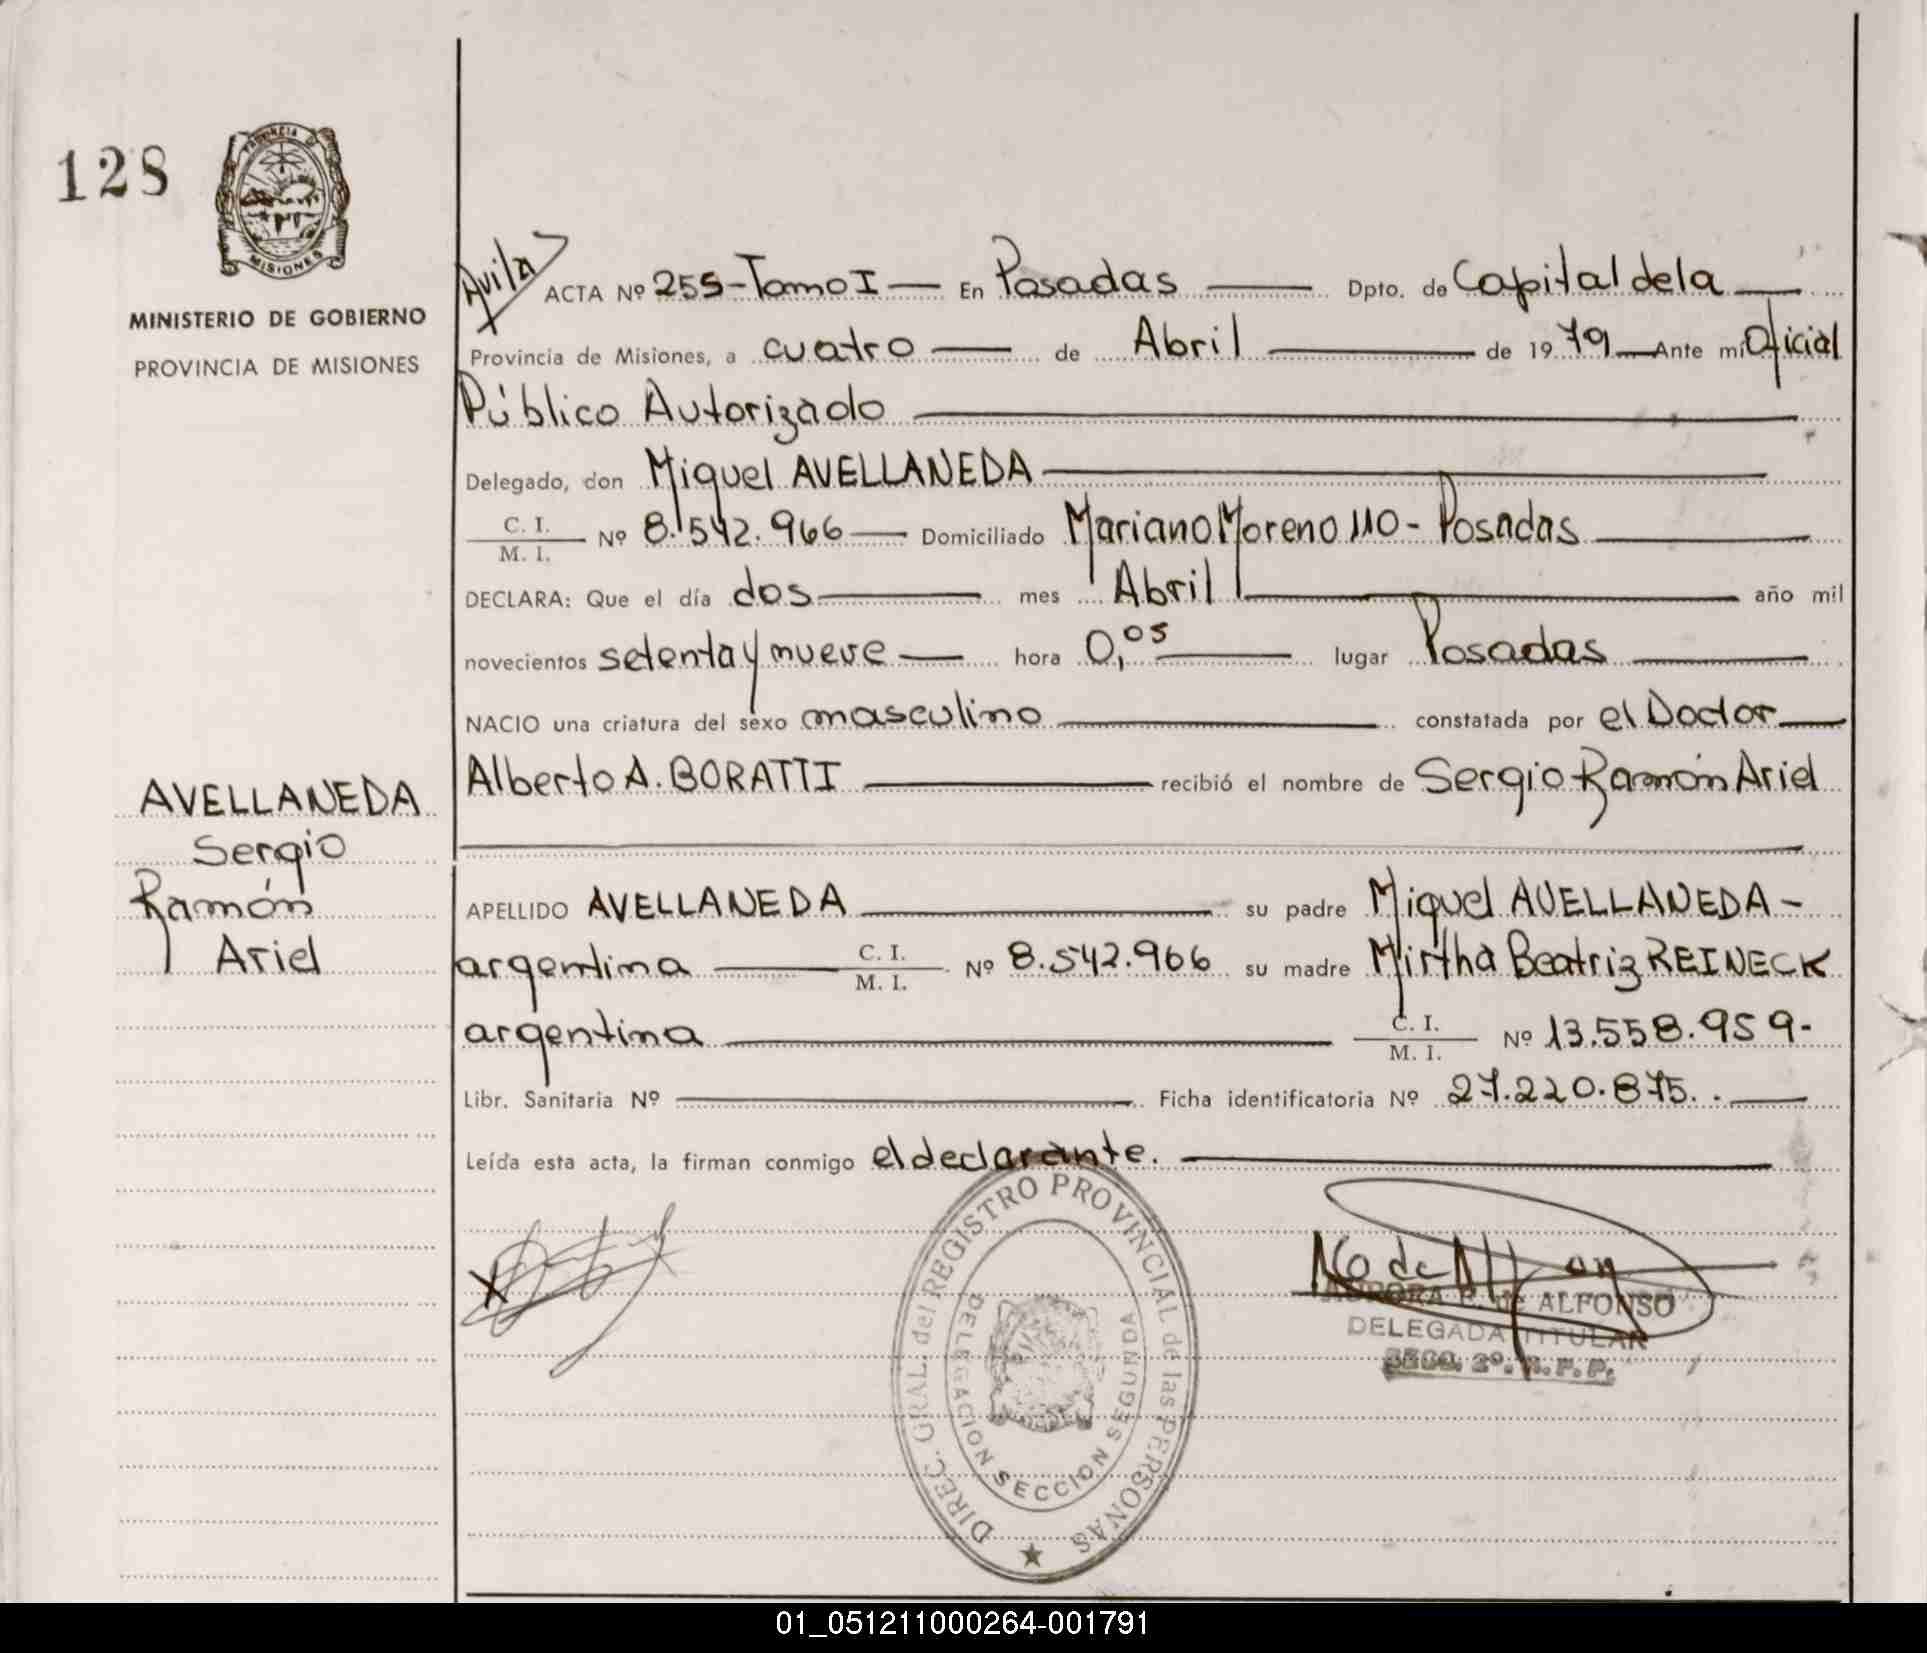 128
PROVINCIA DE
MISIONES
MINISTERIO DE GOBIERNO
PROVINCIA DE MISIONES
AVELLANEDA
Sergio
Ramón
Ariel
Avila
ACTA Nº 255-Tomo I — En Posadas — Dpto. de Capital de la —
Provincia de Misiones, a cuatro — de Abril — de 1979 — Ante mi Oficial
Público Autorizado —
Delegado, don Miguel AVELLANEDA —
C. I.
M. I. Nº 8.542.966 — Domiciliado Mariano Moreno 110 - Posadas —
DECLARA: Que el día dos — mes Abril — año mil
novecientos setenta y nueve — hora 0,05 — lugar Posadas —
NACIO una criatura del sexo masculino — constatada por el Doctor —
Alberto A. BORATTI — recibió el nombre de Sergio Ramón Ariel
APELLIDO AVELLANEDA — su padre Miguel AVELLANEDA -
argentina — C. I.
M. I. Nº 8.542.966 su madre Mirtha Beatriz REINECK
argentina — C. I.
M. I. Nº 13.558.959-
Libr. Sanitaria Nº — Ficha identificatoria Nº 27.220.875. . —
Leída esta acta, la firman conmigo el declarante. —
X
DIREC. GRAL. del REGISTRO PROVINCIAL de las PERSONAS
DELEGACION SECCION SEGUNDA
de ALFONSO
DELEGADA TITULAR
SECC. 2º. R. P. P.
01_051211000264-001791